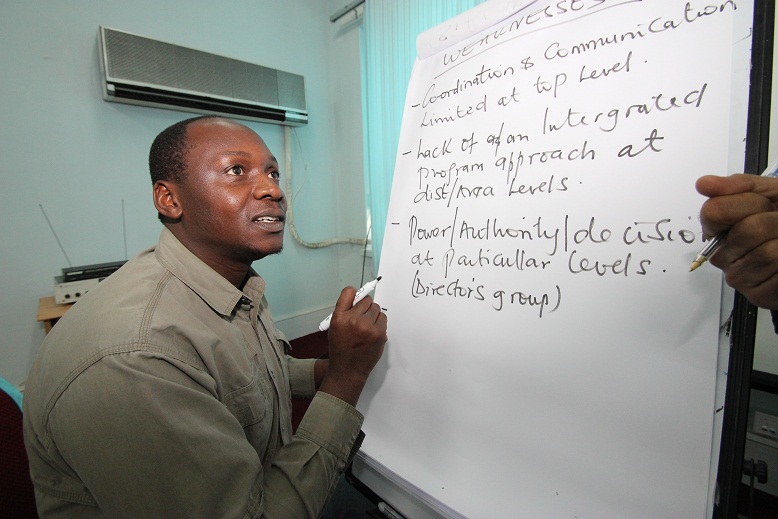 WEAKNESSES
- Coordination & Communication
Limited at top Level.
- Lack of an Intergrated
program approach at
dist/Area Levels.
- Power/Authority/decisio
at particullar levels.
(Director's group)